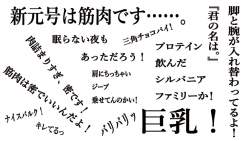 新元号は筋肉です……。
脚と腕が入れ替わってるよ！
『君の名は。』
肉詰まりすぎ、密です！
筋肉は密でいいんだよ！
ナイスバルク！
キレてるっ
眠らない夜も
あっただろう！
三角チョコパイ！
肩にちっちゃい
ジープ
乗せてんのかい！
バリバリッ
プロテイン
飲んだ
シルバニア
ファミリーか！
巨乳！